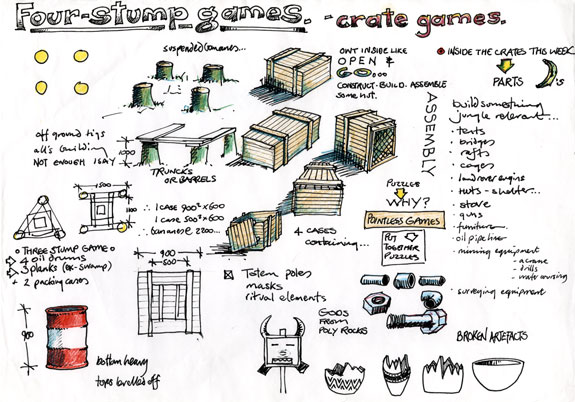 Four-stump games. - crate games.
suspended bananas...
OWT INSIDE LIKE
OPEN &
GO....
CONSTRUCT. BUILD. ASSEMBLE
some nut.
INSIDE THE CRATES THIS WEEK
PARTS
ASSEMBLY
build something
jungle relevant...
• tents
• bridges
• rafts
• cages
• landrover engine
• huts - shelter...
• stove
• guns
• furniture
• oil pipeline
• mining equipment
- a crane
- drills
- water
• surveying equipment
off ground
building
NOT ENOUGH I SAY
1000
TRUNCKS
OR BARRELS
1500
∴ 1 case 900² x 600
1 case 500² x 600
∴ bananas @ 2200...
4 CASES
containing...
PUZZLE
WHY?
POINTLESS GAMES
PUT
TOGETHER
PUZZLES
THREE STUMP GAME
4 oil drums
3 planks
+ 2 packing cases
900
500
Totem poles
masks
ritual elements
900
bottom heavy
tops levelled off
GODS
FROM
POLY ROCKS
BROKEN ARTEFACTS